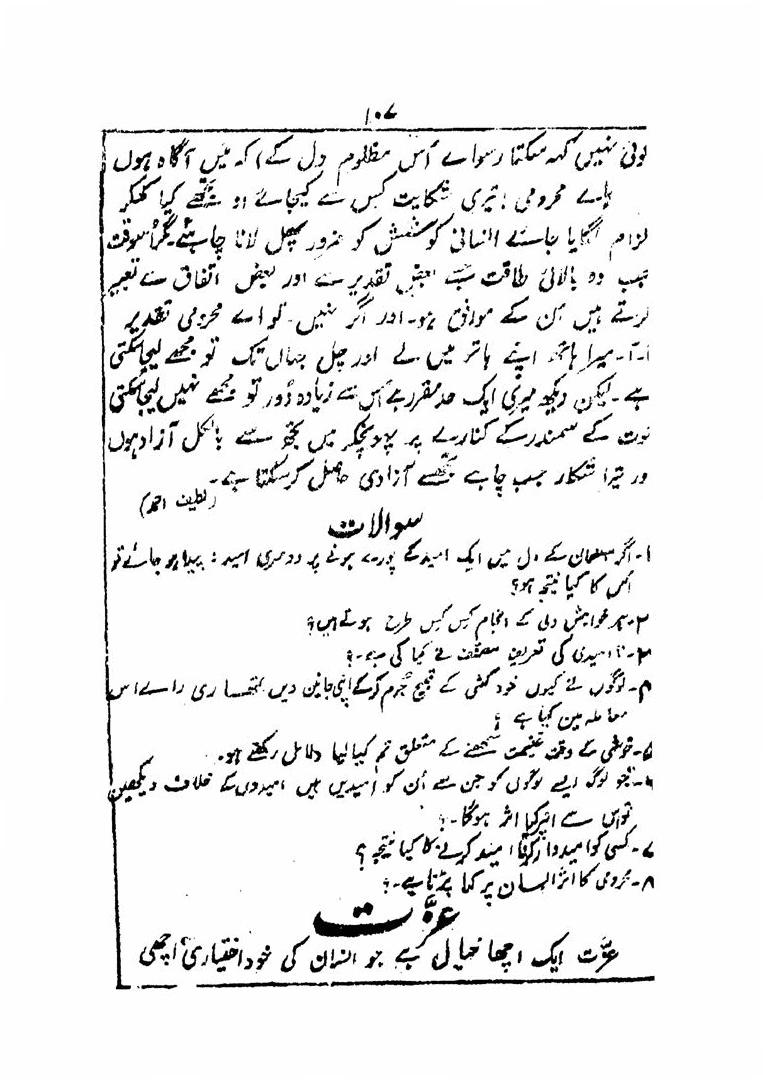 ۱۰۷
کوئی نہیں کہہ سکتا (سوائے اُس مظلوم دل کے) کہ میں آگاہ ہوں
ہائے محرومی! تیری شکایت کس سے کیجائے اور تجھے کیا کہکر
الزام لگایا جائے انسانی کوشش کو ضرور پھل لانا چاہئے۔ مگر اسوقت
جب وہ بالائی طاقت جسے بعض تقدیر سے اور بعض اتفاق سے تعبیر
کرتے ہیں اس کے موافق ہو۔ اور اگر نہیں۔ تو اے محرومی تقدیر
آ۔ آ۔ میرا ہاتھ اپنے ہاتھ میں لے اور چل جہاں تک تو مجھے لیجاسکتی
ہے۔ لیکن دیکھ میری ایک حد مقرر ہے اُس سے زیادہ دُور تو مجھے نہیں لیجاسکتی
موت کے سمندر کے کنارے پر پہونچکر میں تجھ سے بالکل آزاد ہوں
اور تیرا شکار جب چاہے تجھسے آزادی حاصل کرسکتا ہے۔
(لطیف احمد)
سوالات
۱۔ اگر انسان کے دل میں ایک امید کے پورے ہونے پر دوسری امید نہ پیدا ہو جائے تو
اُس کا کیا نتیجہ ہو؟
۲۔ ہر خواہش دلی کے انجام کس کس طرح ہوتے ہیں؟
۳۔ نا امیدی کی تعریف مصنف نے کیا کی ہے۔؟
۴۔ لوگوں نے کیوں خود کشی کے قبیح جُرم کرکے اپنی جانیں دیں تمھاری رائے اس
معاملہ میں کیا ہے؟
۵۔ خوشی کے وقت غنیمت سمجھنے کے متعلق تم کیا کیا دلائل رکھتے ہو۔
۶۔ جو لوگ ایسے لوگوں کو جن سے اُن کو امیدیں ہیں امیدوں کے خلاف دیکھیں
تو اس سے اُنپر کیا اثر ہوگا۔؟
۷۔ کسی کو امیدوار کرکے نا امید کرنے کا کیا نتیجہ؟
۸۔ محرومی کا اثر انسان پر کیا پڑتا ہے۔؟
عزّت
عزّت ایک اچھا خیال ہے جو انسان کی خود اختیاری اچھی